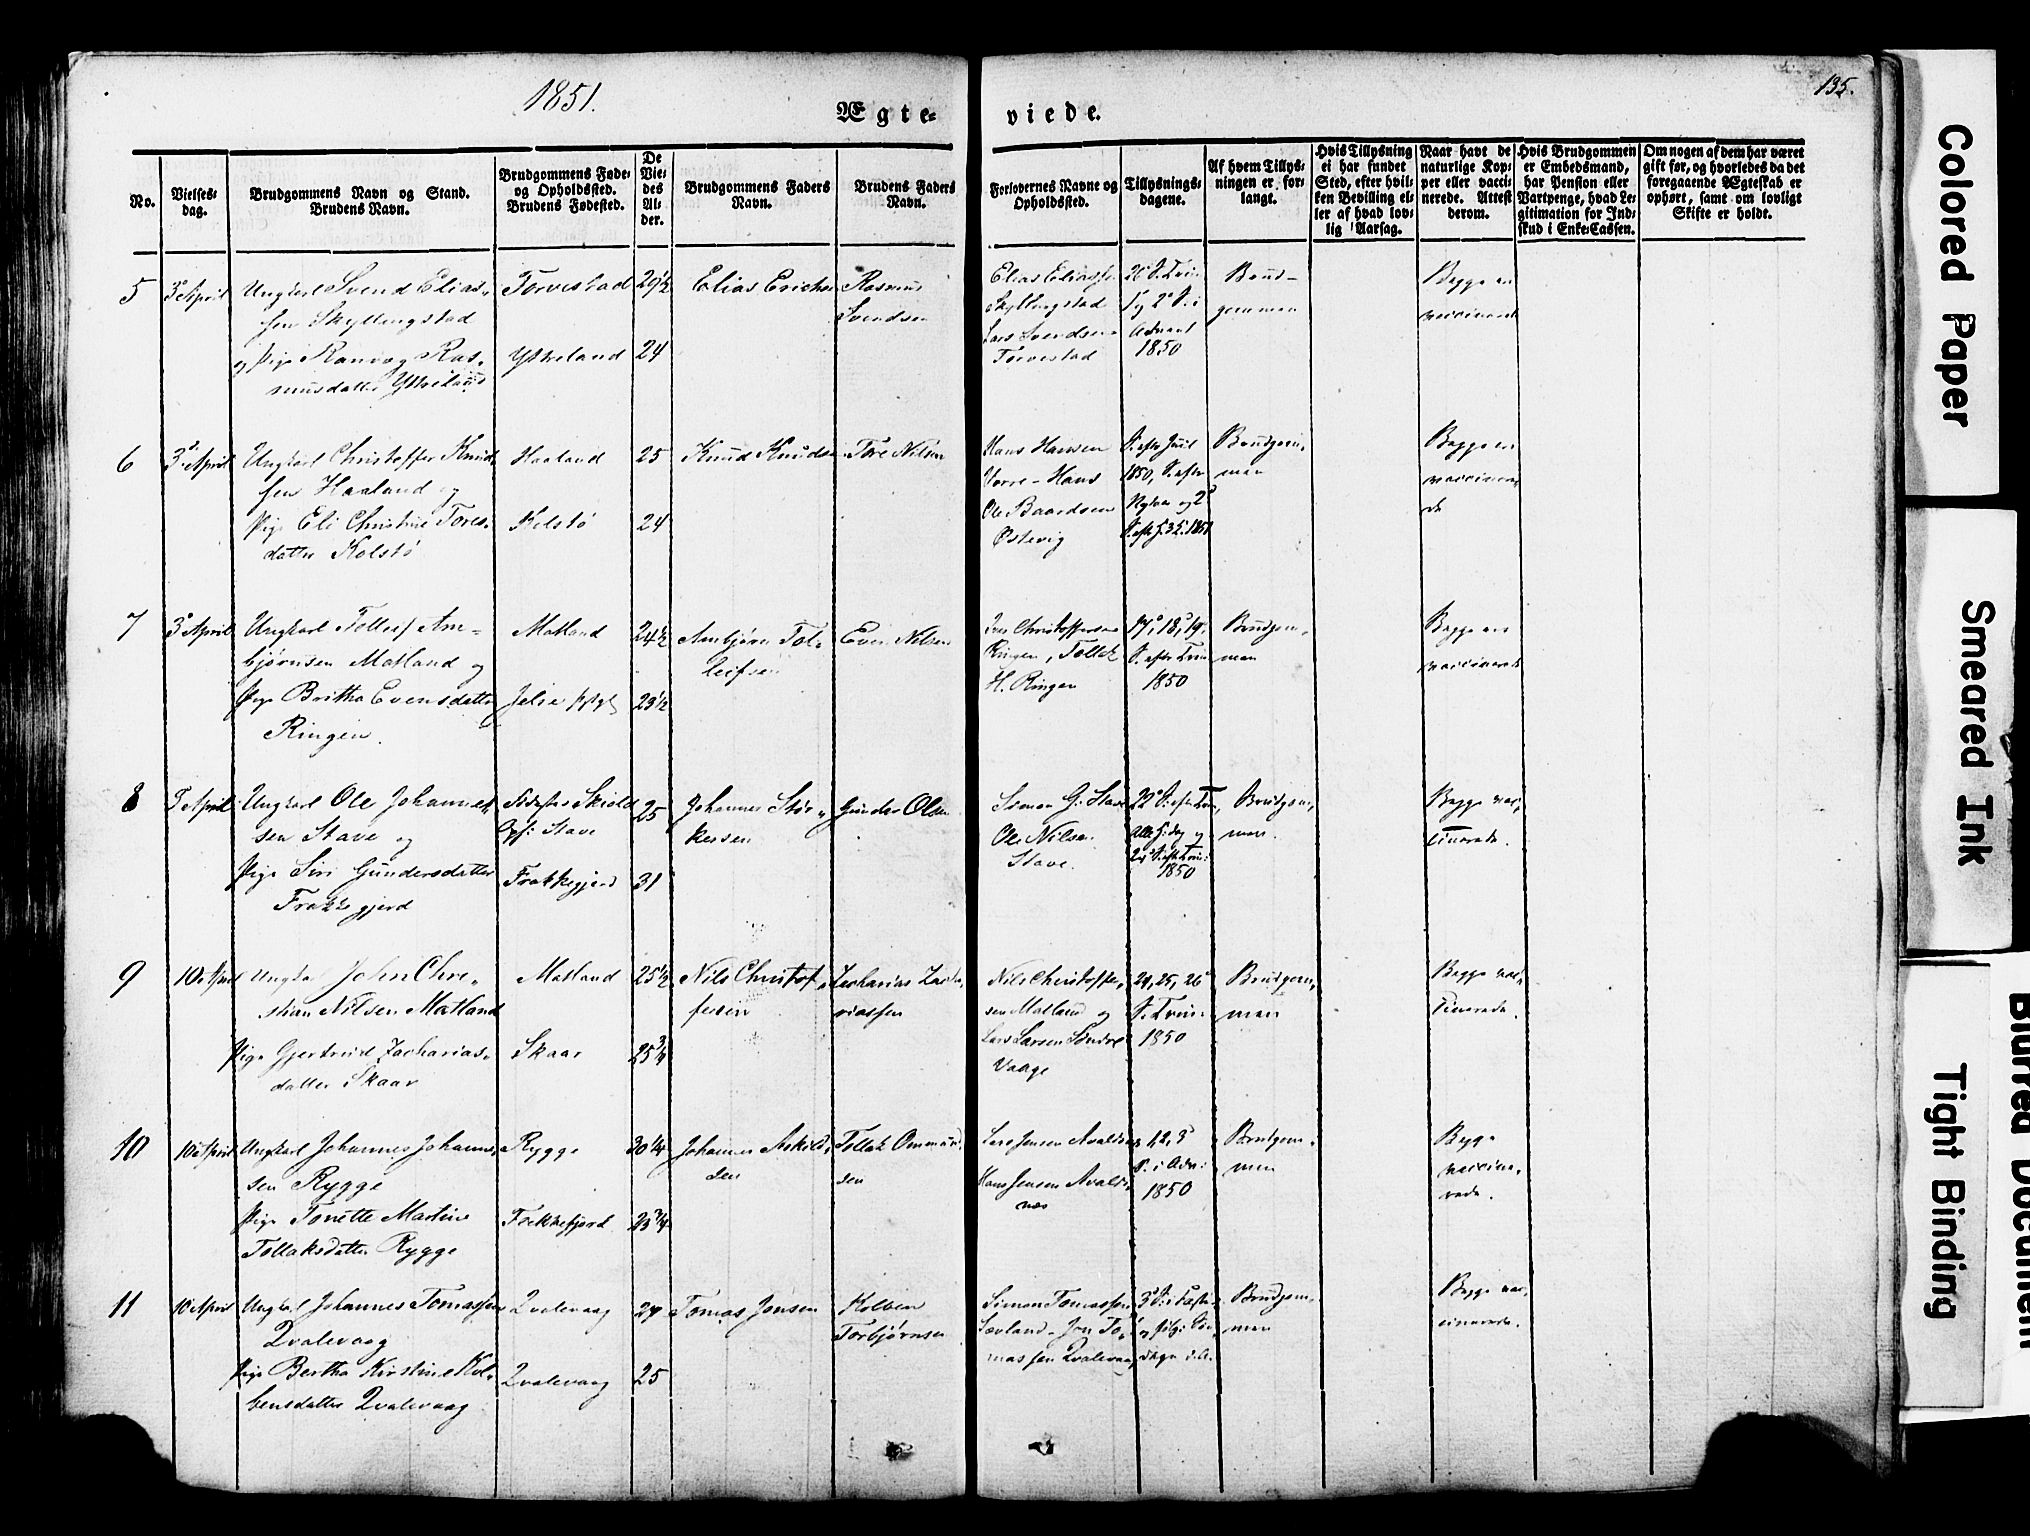 1851.
135.
Ægte-
viede.
No.
Vielses-
dag.
Brudgommens Navn og Stand.
Brudens Navn.
Brudgommens Føde-
og Opholdssted.
Brudens Fødested.
De
Vie-
des
Al-
der.
Brudgommens Faders
Navn.
Brudens Faders
Navn.
Forlovernes Navne og
Opholdssted.
Tillysnings-
dagene.
Af hvem Tillys-
ningen er for-
langt.
Hvis Tillysning
ei har fundet
Sted, efter hvil-
ken Bevilling el-
ler af hvad lov-
lig Aarsag.
Naar havt de
naturlige Kop-
per eller vacci-
nerede. Attest
derom.
Hvis Brudgommen
er Embedsmand,
har Pension eller
Vartpenge, hvad Le-
gitimation for Ind-
skud i Enke-Cassen.
Om nogen af dem har været
gift før, og hvorledes da det
foregaaende Ægteskab er
ophørt, samt om lovligt
Skifte er holdt.
5
3 April
Ungkarl Svend Elias-
sen Skyllingstad
og Pige Ranvæg Ras-
musdatter Ytreland
Torvestad
Ytreland
29½
24
Elias Erichsen
Rasmus
Svendsen
Elias Eliassen
Skyllingstad
Lars Svendsen
Torvestad
26 S. Trin
2 S. i
Advent
1850
Brud-
gommen
Begge er
vaccinerede
6
3 April
Ungkarl Christoffer Knud-
sen Haaland og
Pige Eli Christine Tores-
datter Kolstø
Haaland
Kolstø
25
24
Knud Knudsen
Tore Nilsen
Hans Hansen
Vorre - Hans
Ole Baardsen
Østevig
S. efter Juul
1850, S. efter
Nytaar og 2
1851
Brudgom-
men
Begge er
vaccinere-
de
7
3 April
Ungkarl Tollef Am-
bjørnsen Matland og
Pige Britha Evensdatter
Ringen.
Matland
Jelse
24½
23½
Ambjørn Tol-
leifsen
Even Nilsen
Christoffersen
Ringen, Tollak
H. Ringen
17, 18, 19
S. efter Trin
1850
Brudgom-
men
Begge ere
vaccinerede
8
April
Ungkarl Ole Johannes-
sen Stave og
Pige Siri Gundersdatter
Frakkegjerd
Skjold
Stave
Frakkegjerd
25
31
Johannes Stør-
kersen
Gunder Olsen
Simon G. Stave
Ole Nilsen
Stave.
22 S. efter Trin,
Alle H. dag og
24 S. efter Trin:
1850
Brudgom-
men.
Begge vac-
cinerede.
9
10 April
Ungka John Chri-
stian Nilsen Matland
Pige Gjertrud Zacharias-
datter Skaar
Matland
Skaar
25½
25¾
Nils Christof-
fersen
Zacharias Zacha-
riassen
Nils Christoffer-
sen Matland og
Lars Larsen Søndre
Vaage
24, 25, 26
S. Trin:
1850
Brudgom-
men
Begge vac-
cinerede.
10
10 April
Ungkarl Johannes Johannes-
sen Rygge
Pige Tonette Martine
Tollaksdatter Rygge
Rygge
Fækkefjord
30¼
23¾
Johannes Askild-
sen
Tollak Ommund-
sen
Lars Jensen Avaldsnes
Hans Jensen Avalds-
næs
1, 2, 3
S. i Adv:
1850
Brudgom-
men
Begge
vaccine-
rede.
11
10 April
Ungkarl Johannes Tomassen
Qvalevaag
Pige Bertha Kirstine Kol-
bensdatter Qvalevaag
Qvalevaag
Qvalevaag
24
25
Tomas Jonsen
Kolben
Torbjørnsen
Simon Tomassen
Sævland - Jon To-
massen Qvalevaag
3 S. i Faste
og følg: Søn-
dage
Brudgom-
men
Begge vac-
cinerede.
Colored Paper
Smeared Ink
Tight Binding
Blurred Document